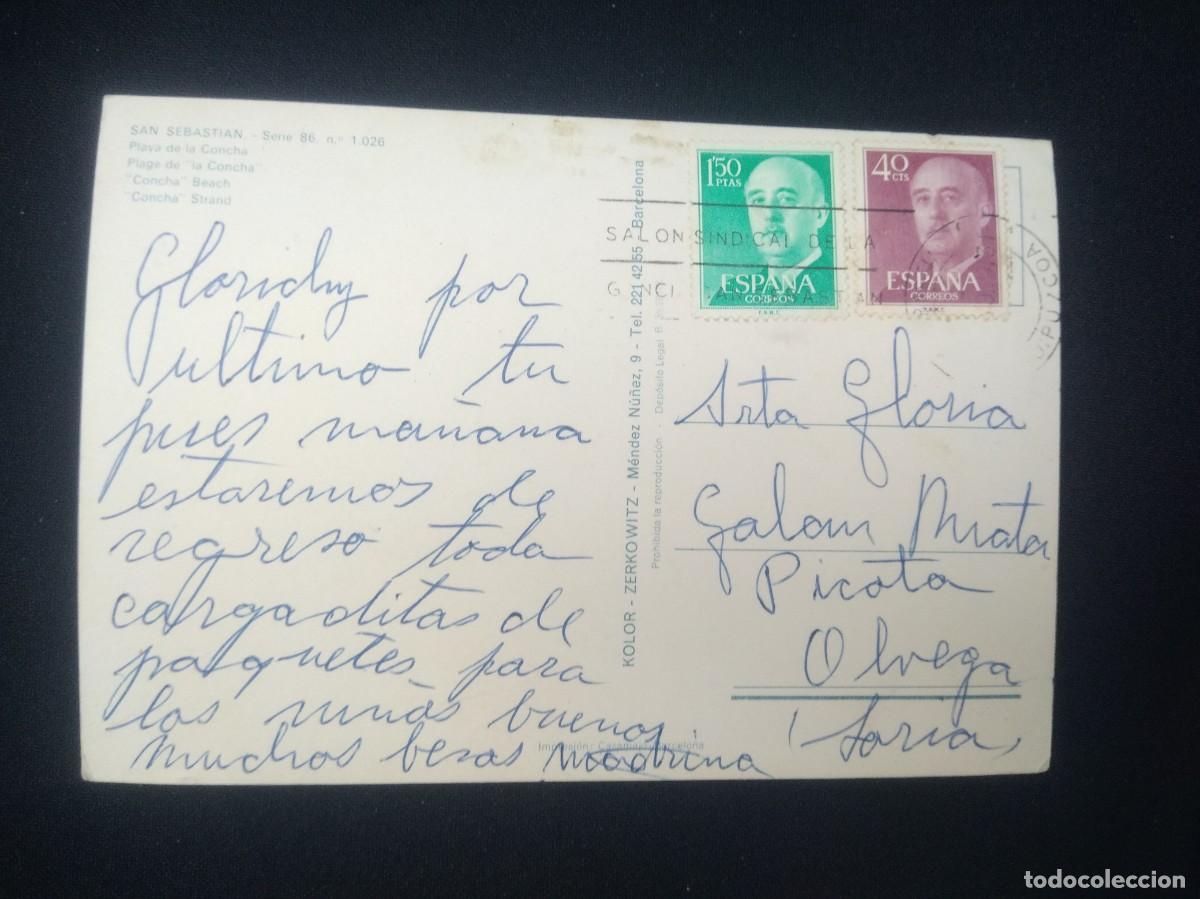 SAN SEBASTIAN. - Serie 86, n.º 1.026
Playa de la Concha
Plage de "la Concha"
"Concha" Beach
"Concha" Strand
por
ultimo tu
pues mañana
estaremos de
regreso toda
cargaditas de
paquetes para
los niños buenos
muchos besos madrina
KOLOR - ZERKOWITZ - Méndez Núñez, 9 - Tel. 221 42 55 - Barcelona
Prohibida la reproducción - Depósito Legal B.
Impresión: Barcelona
1'50
PTAS
ESPAÑA
CORREOS
F.N.M.T.
40
CTS
ESPAÑA
CORREOS
F.N.M.T.
SALON SINDICAL DE LA
Srta Gloria
Galan Mata
Picota
Olvega
(Soria)
todocoleccion